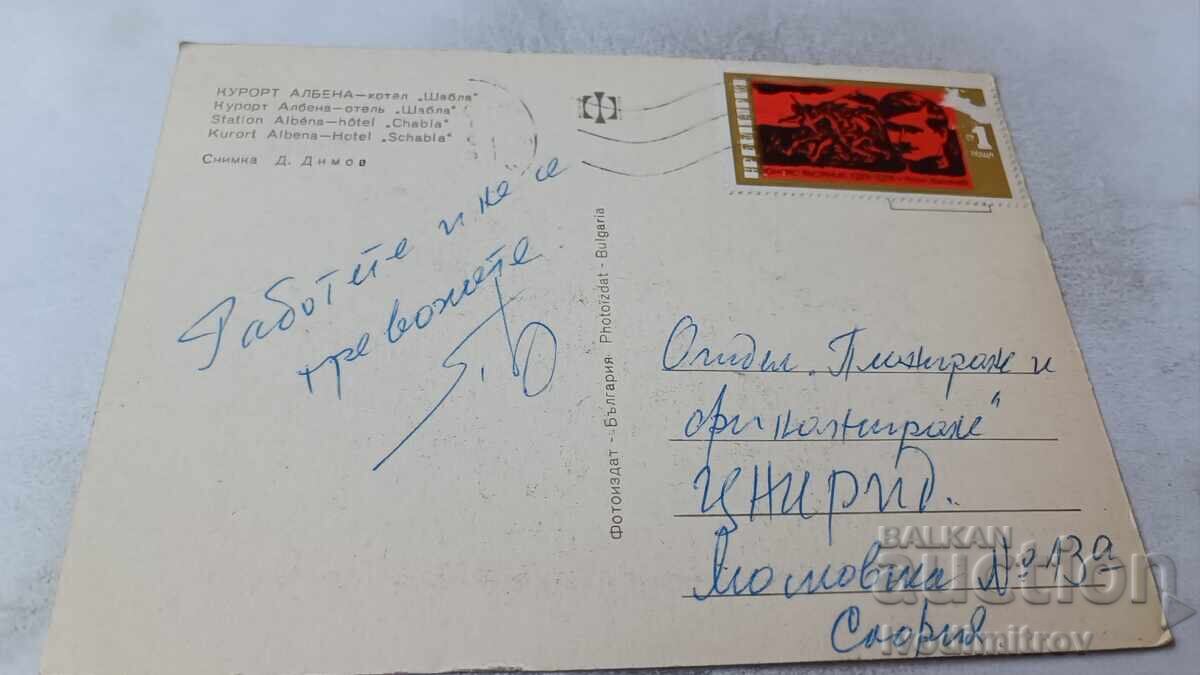 КУРОРТ АЛБЕНА—хотел „Шабла“
Курорт Албена—отель „Шабла“
Station Albéna—hôtel „Chabla“
Kurort Albena—Hotel „Schabla“
Снимка Д. Димов
Работете и не се
тревожете
Фотоиздат - България Photoizdat - Bulgaria
НР БЪЛГАРИЯ
1
ПОЩА
Отдел „Планиране и
финансиране“
ЦНИРИД.
№ 13а
София
BALKAN
auction
ivodimitrov